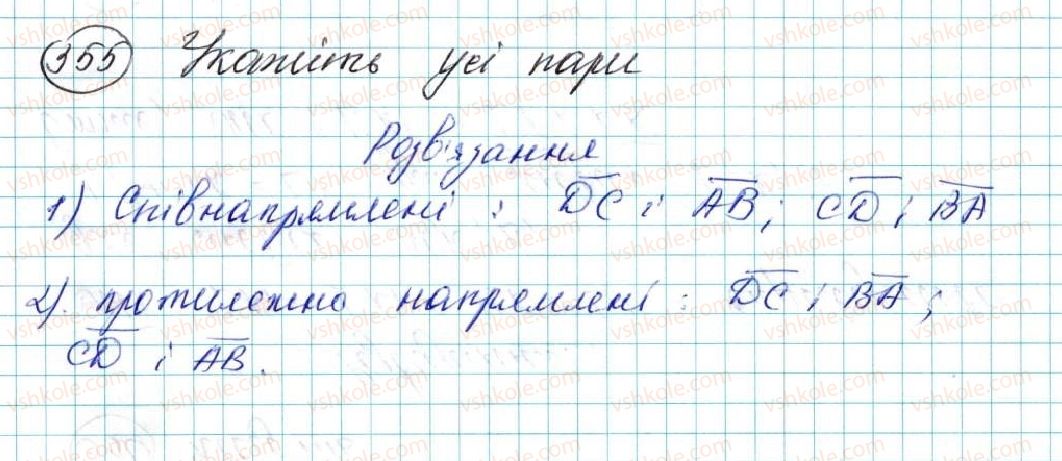 355 Укажіть усі пари
Розв'язання
1) Співнапрямлені : DC і AB; CD і BA
2). протилежно напрямлені : DC і BA;
CD і AB.